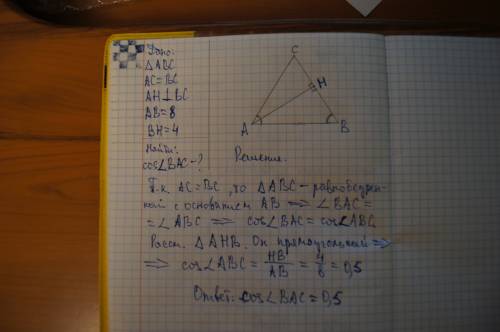 Дано:
△ABC
AC=BC
AH⊥BC
AB=8
BH=4
Найти:
cos∠BAC-?
C
H
A
B
Решение.
Т.к. AC=BC, то △ABC - равнобедрен-
ный с основанием AB ⟹ ∠BAC=
=∠ABC ⟹ cos∠BAC = cos∠ABC.
Рассм. △AHB. Он прямоугольный ⟹
⟹ cos∠ABC = HB/AB = 4/8 = 0,5
Ответ: cos∠BAC = 0,5